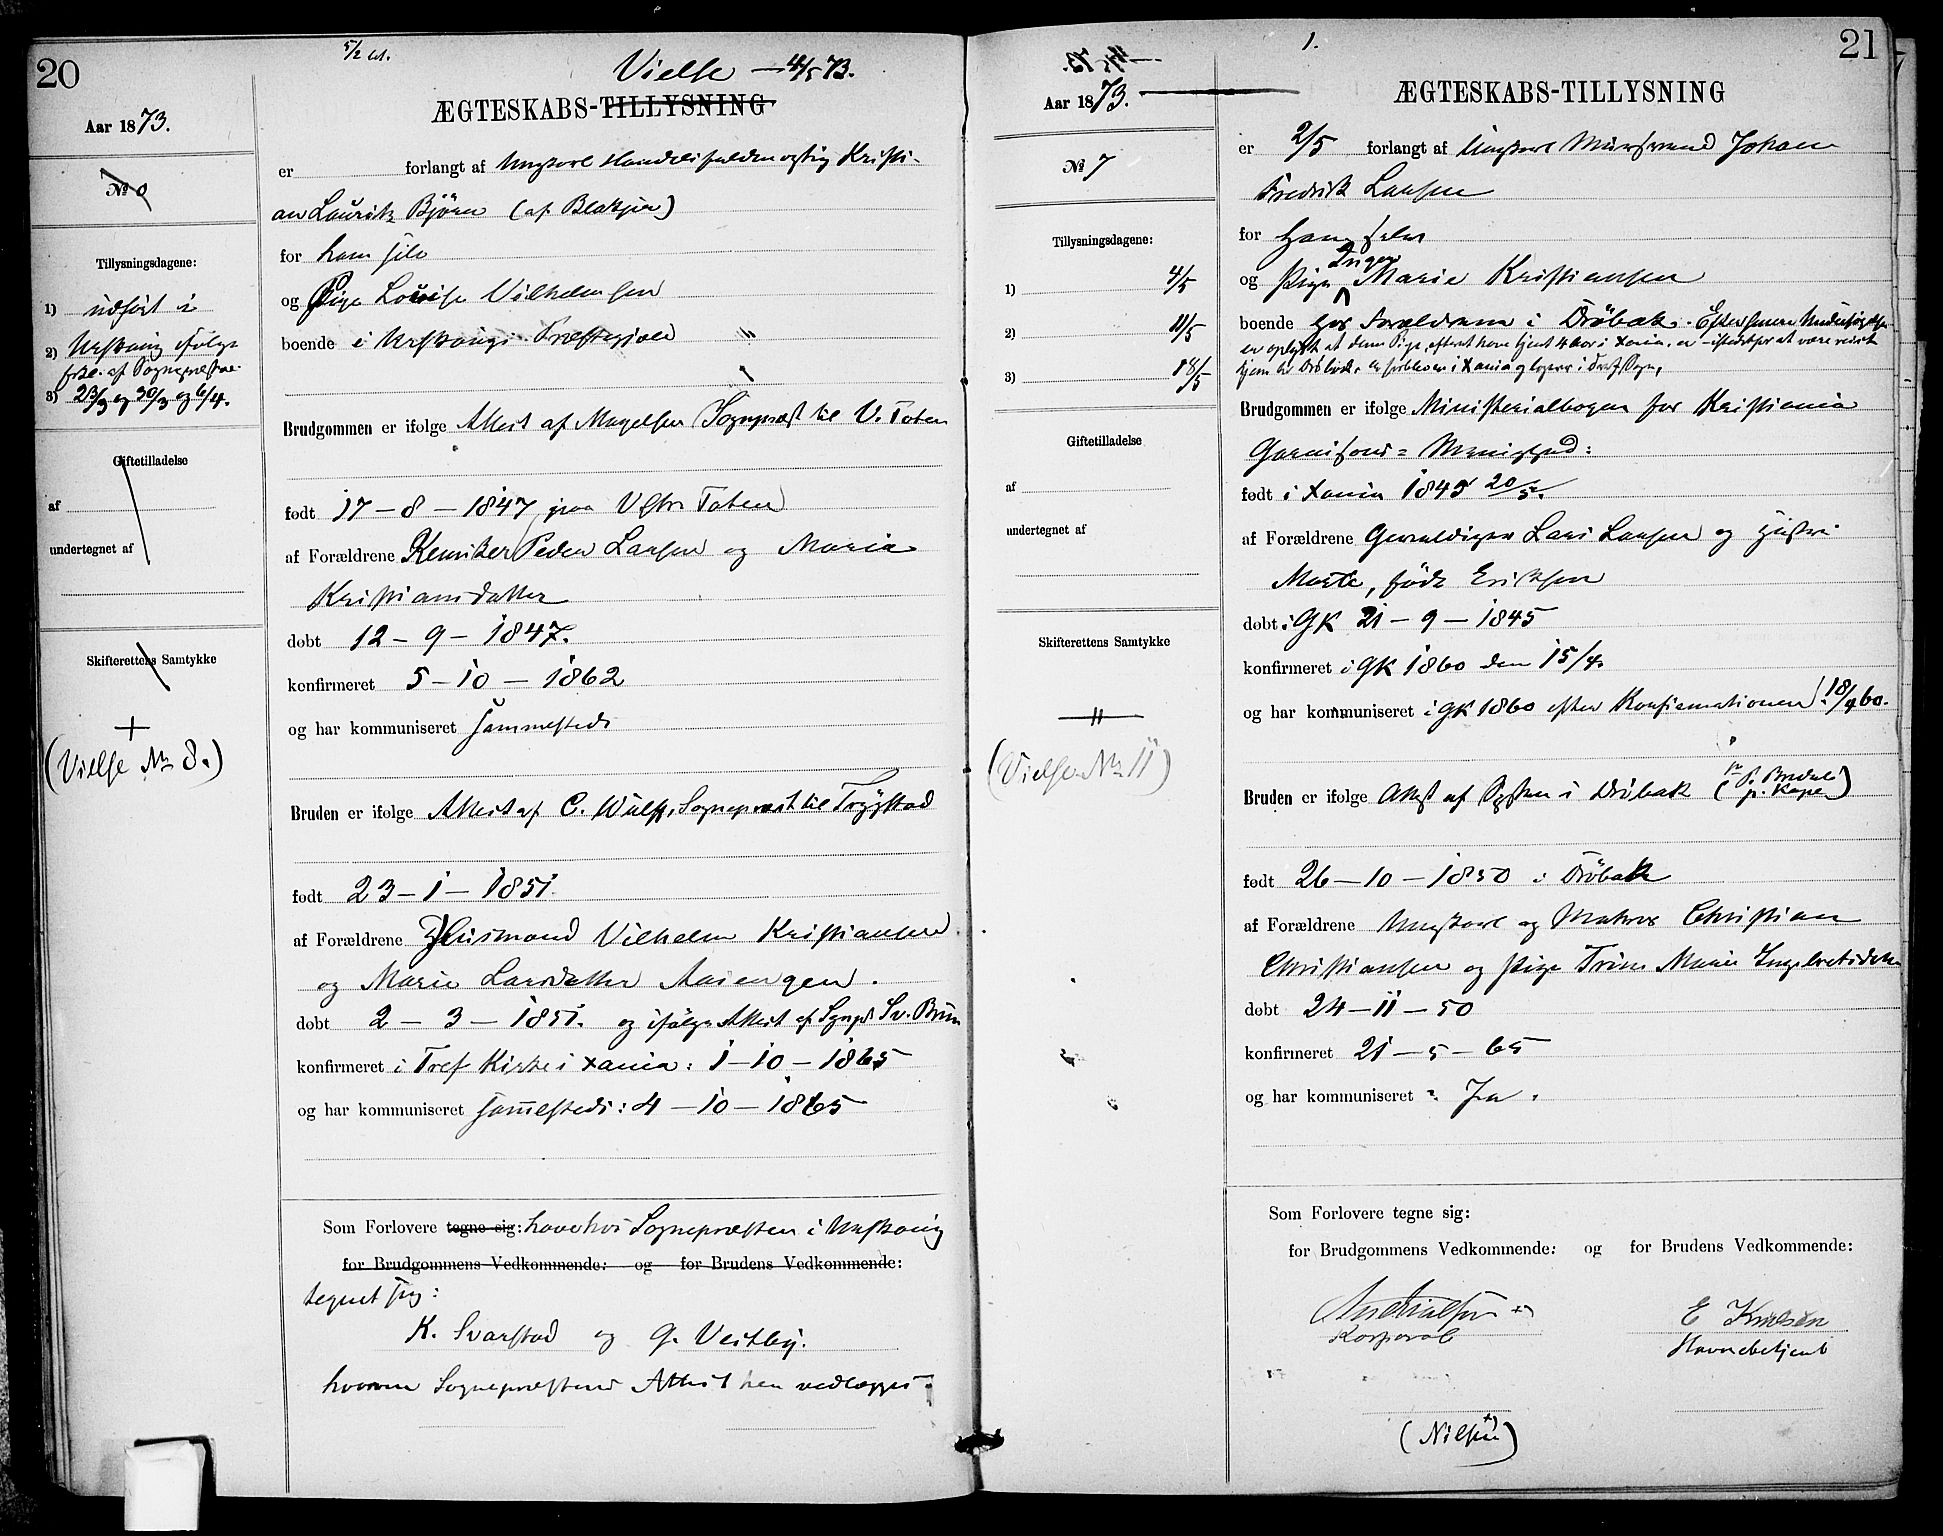 20
5/2
Vielse — 4/5 73.
ÆGTESKABS-TILLYSNING
Aar 1873.
No
Tillysningsdagene:
1) udført i
2) Urskoug ifølge
af Sognepræst
3) 23/3 og 30/3 og 6/4.
Giftetilladelse
af
undertegnet af
Skifterettens Samtykke
(Vielse No 8.)
er forlangt af Ungkarl Handelsfuldmægtig Kristi-
an Lauritz Björn (af Blakjer)
for ham selv
og Pige Lovise Vilhelmsen
boende i Urskougs Præstegjeld "
Brudgommen er ifølge Attest af Magelsen Sognepræst til V. Toten
født 17 – 8 – 1847 paa Vestre Toten
af Forældrene Peder Larsen og Maria
Kristiansdatter
døbt 12 – 9 – 1847.
konfirmeret 5 – 10 – 1862
og har kommuniseret sammesteds
Bruden er ifølge Attest af C. Wulff, Sognepræst til Trygstad
født 23 – 1 – 1851.
af Forældrene Husmand Vilhelm Kristiansen
og Marie Larsdatter Aasengen.
døbt 2 – 3 – 1851. og ifølge Attest af Sognpr Sv. Brun
konfirmeret i Tref Kirke i Xania: 1 – 10 – 1865
og har kommuniseret sammesteds: 4 – 10 – 1865
Som Forlovere tegne sig: have hos Sognepræsten i Urskoug
for Brudgommens Vedkommende: og for Brudens Vedkommende:
tegnet sig:
K. Svarstad og G. Vestby.
hvorom Sognepræstens Attest her vedlægges.
1.
21
ÆGTESKABS-TILLYSNING
Aar 1873.
No 7
Tillysningsdagene:
1) 4/5
2) 11/5
3) 18/5
Giftetilladelse
af
undertegnet af
Skifterettens Samtykke
"
(Vielse No 11)
er 2/5 forlangt af Ungkarl Murs<wbr>vend Johan
Fredrik Larsen
for ham selv
Inger
og Pige Marie Kristiansen
boende hos Forældrene i Dröbak. Efter senere Undersøgelse
er oplyst at denne Pige, efterat have tjent 4 Aar i Xania, er istedetfor at være reist
hjem til Dröbak, er forbleven i Xania og logerer i Tref. Sogn.
Brudgommen er ifølge Ministerialbogen for Kristiania
Garnisons = Menighed:
født i Xania 1845 20/5.
af Forældrene Gevaldiger Lars Larsen og Hustru
Marte, född Eriksen
døbt i GK 21 – 9 – 1845
konfirmeret i GK 1860 den 15/4.
og har kommuniseret i GK 1860 efter Konfirmationen 18/4 60.
Bruden er ifølge Attest af Præsten i Dröbak (P. Bredal p. Kapel)
født 26 – 10 – 1850 i Dröbak
af Forældrene Ungkarl og Matros Christian
Christiansen og Pige Trine Marie Ingebretsdatter
døbt 24 – 11 – 50
konfirmeret 21 – 5 – 65
og har kommuniseret : Ja.
Som Forlovere tegne sig:
for Brudgommens Vedkommende: og for Brudens Vedkommende:
E Knudsen
Korporal
Havnebetjent
(Nilsen +)